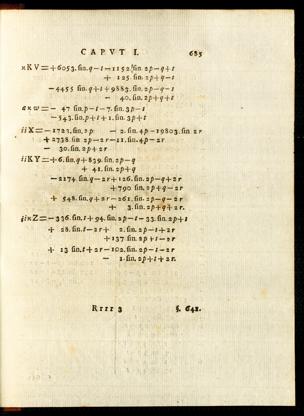 CAPVT I. 685
κKV=+6053.sin.q−t−1152.sin.2p−q+t
+ 125.sin.2p+q−t
−4455 sin.q+t+9883.sin.2p−q−t
− 40.sin.2p+q+t
− 47 sin.p−t−7.sin.3p−t
−543.sin.p+t+1.sin.3p+t
iiX=−1723.sin.2p − 2.sin.4p−19803.sin 2r
+2738 sin 2p−2r−11.sin.4p−2r
− 30.sin.2p+2r
iiKY=+6.sin.q+839.sin.2p−q
+ 41.sin.2p+q
−2174 sin.q−2r+126.sin.2p−q+2r
+790 sin.2p+q−2r
+ 548.sin.q+2r−261.sin.2p−q−2r
+ 3.sin.2p+q+2r.
iiκZ=−336.sin.t+94.sin.2p−t−33.sin.2p+t
+ 28.sin.t−2r+ 2.sin.2p−t+2r
+137 sin.2p+t−2r
+ 13 sin.t+2r−102.sin.2p−t−2r
− 1.sin.2p+t+2r.
Rrrr 3 §. 642.